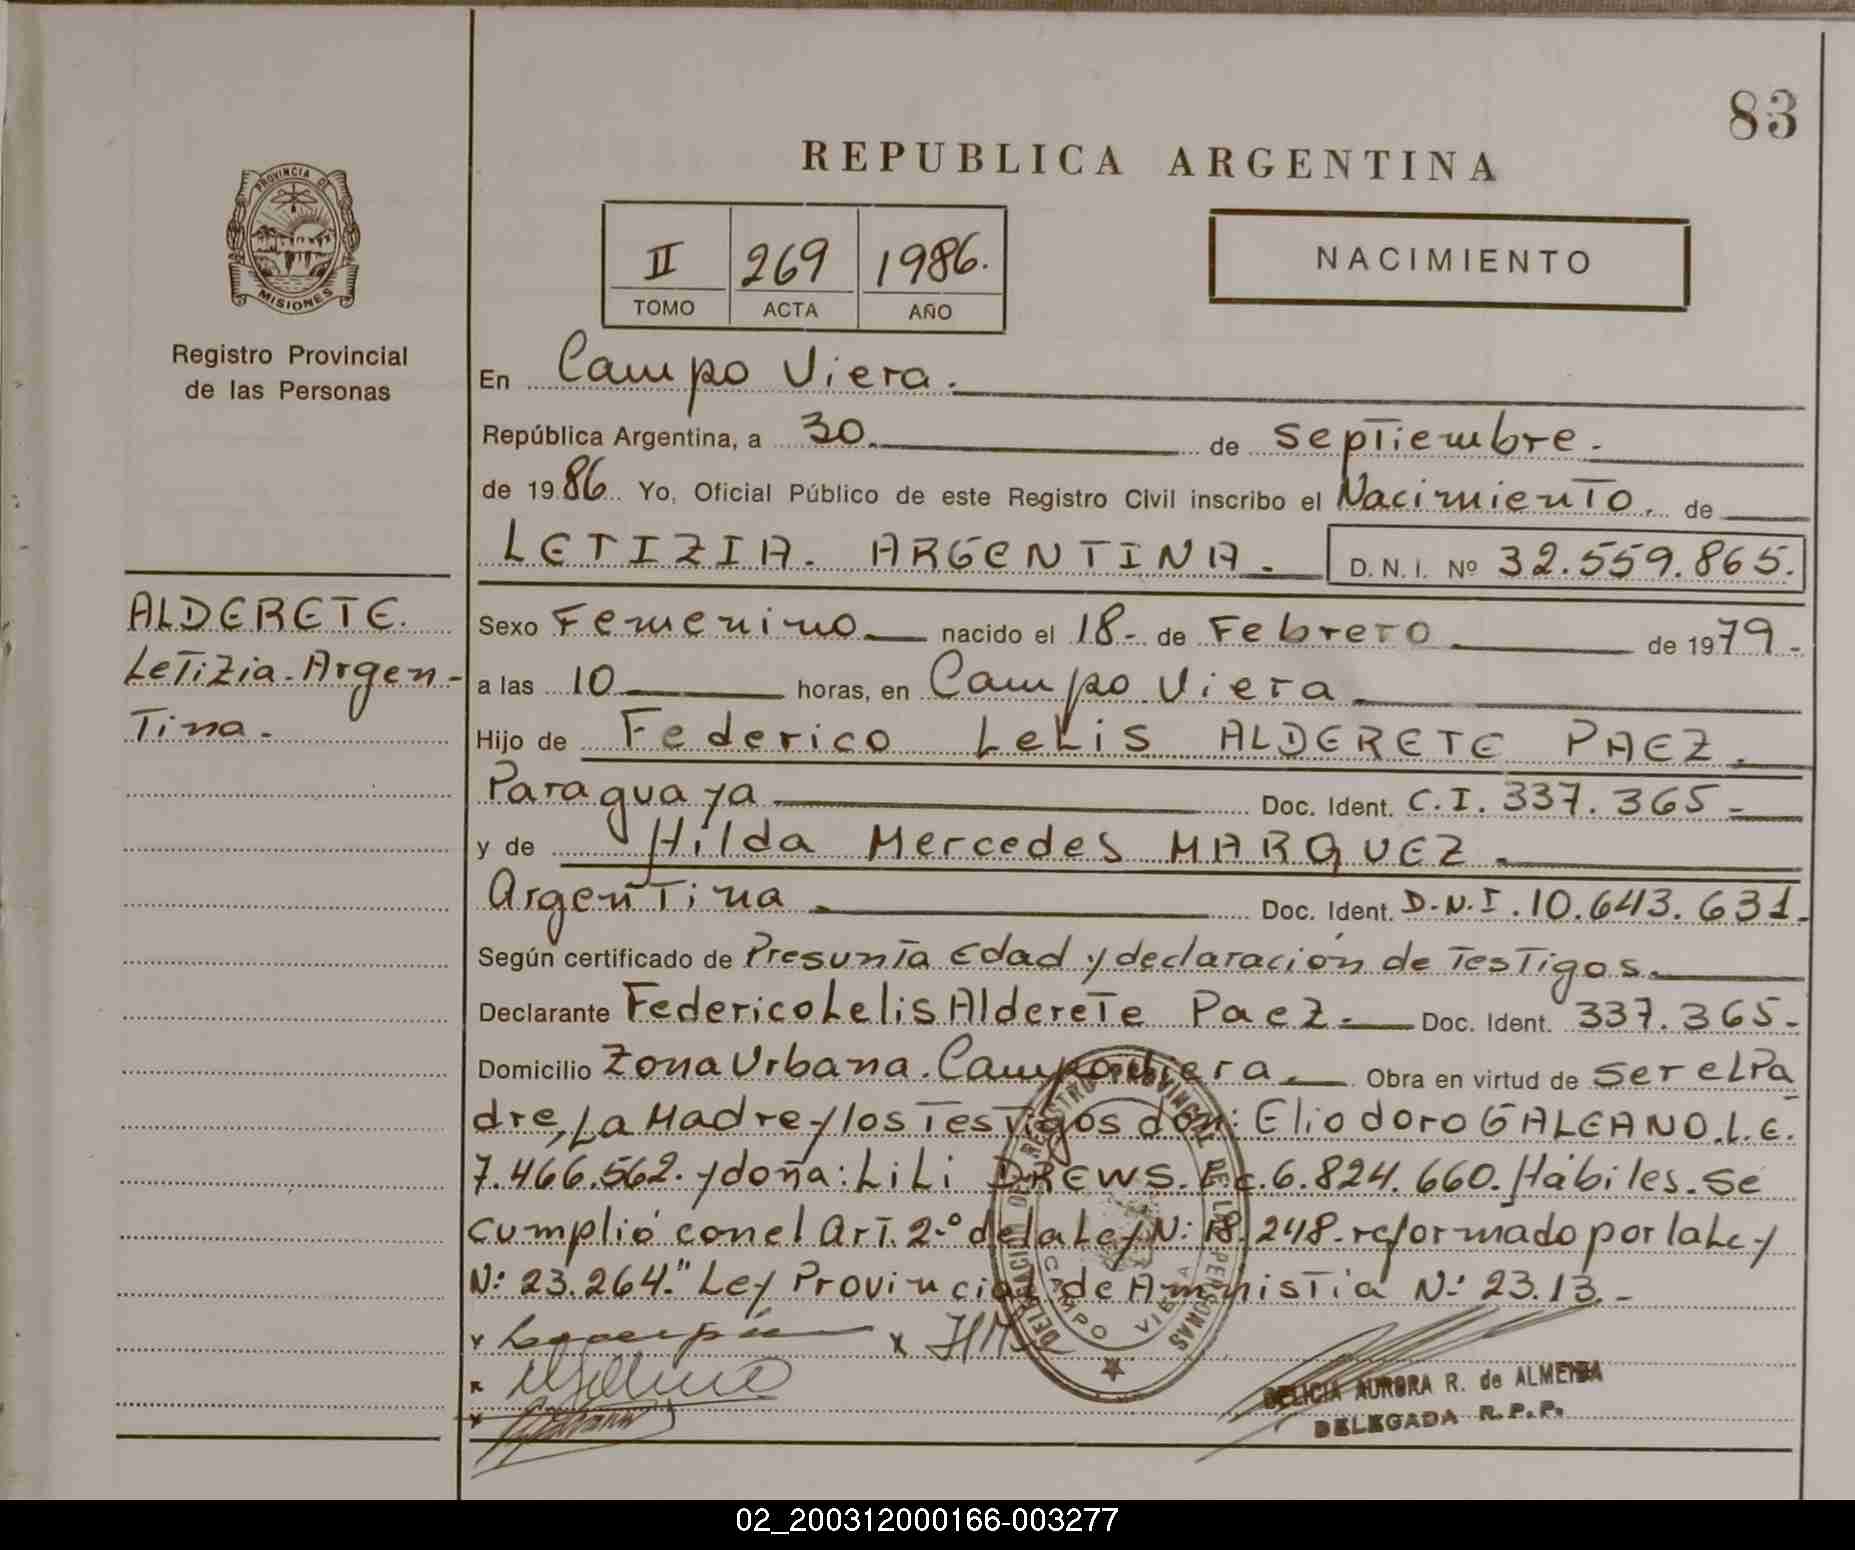 83
REPUBLICA ARGENTINA
PROVINCIA DE
MISIONES
Registro Provincial
de las Personas
II 269 1986.
TOMO ACTA AÑO
NACIMIENTO
En Campo Viera.
República Argentina, a 30. de Septiembre.
de 1986 Yo, Oficial Público de este Registro Civil inscribo el Nacimiento. de
LETIZIA. ARGENTINA. D.N.I. Nº 32.559.865.
ALDERETE.
Letizia. Argen-
tina.
Sexo Femenino nacido el 18- de Febrero de 1979-
a las 10 horas, en Campo Viera
Hijo de Federico Lelis ALDERETE PAEZ.
Paraguaya Doc. Ident. C.I. 337.365-
y de Hilda Mercedes MARQUEZ.
Argentina. Doc. Ident. D.N.I. 10.643.631.
Según certificado de Presunta Edad y declaración de Testigos.
Declarante Federico Lelis Alderete Paez. Doc. Ident. 337.365-
Domicilio Zona Urbana. Campo Viera. Obra en virtud de ser el Pa
dre, La Madre y los Testigos don: Eliodoro GALEANO. L.E.
7.466.562. y doña: LiLi DREWS. L.C. 6.824.660. Hábiles. Se
cumplió con el Art. 2.º de la Ley N: 18.248. reformado por la Ley
N: 23.264." Ley Provincial de Amnistía N: 23.13.-
DELEGACION DE REGISTRO PROVINCIAL DE LAS PERSONAS
CAMPO VIERA
DELICIA AURORA R. de ALMEIDA
DELEGADA R.P.P.
02_200312000166-003277